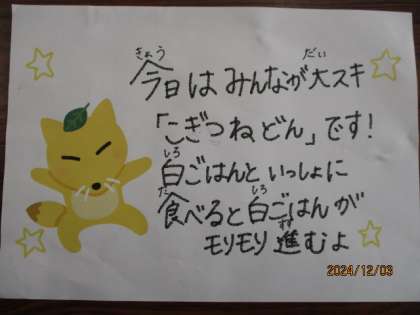 今日はみんなが大スキ
「こぎつねどん」です!
白ごはんといっしょに
食べると白ごはんが
モリモリ進むよ
2024/12/03